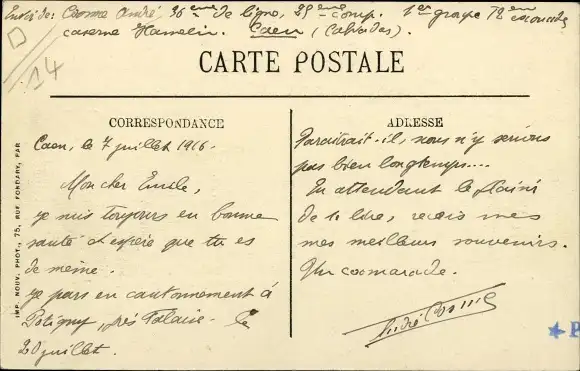 Envoi de: Cosme André, 36ème de ligne, 35ème comp. 1er groupe 12ème escouade
caserne Hamelin. Caen (Calvados).
14
CARTE POSTALE
CORRESPONDANCE
Caen, le 7 juillet 1916.
Mon cher Emile,
je suis toujours en bonne
santé et espère que tu es
de même.
Je pars en cantonnement à
Potigny, près Falaise. le
20 juillet.
ADRESSE
Paraîtrait-il, nous n'y serions
pas bien longtemps....
En attendant le plaisir
de te lire, reçois mes
mes meilleurs souvenirs.
Un camarade.
André
IMP. NOUV. PHOT., 75, RUE FONDARY, PAR
P